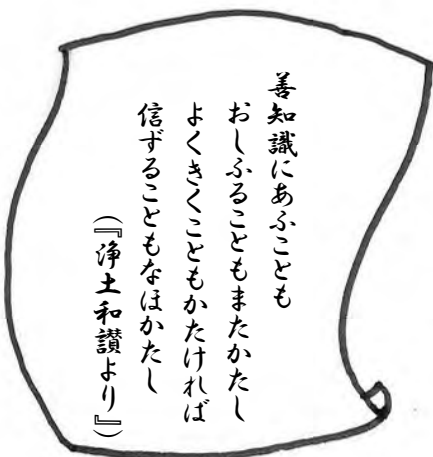 善知識にあふことも
おしふることもまたかたし
よくきくこともかたければ
信ずることもなほかたし
（『浄土和讃より』）